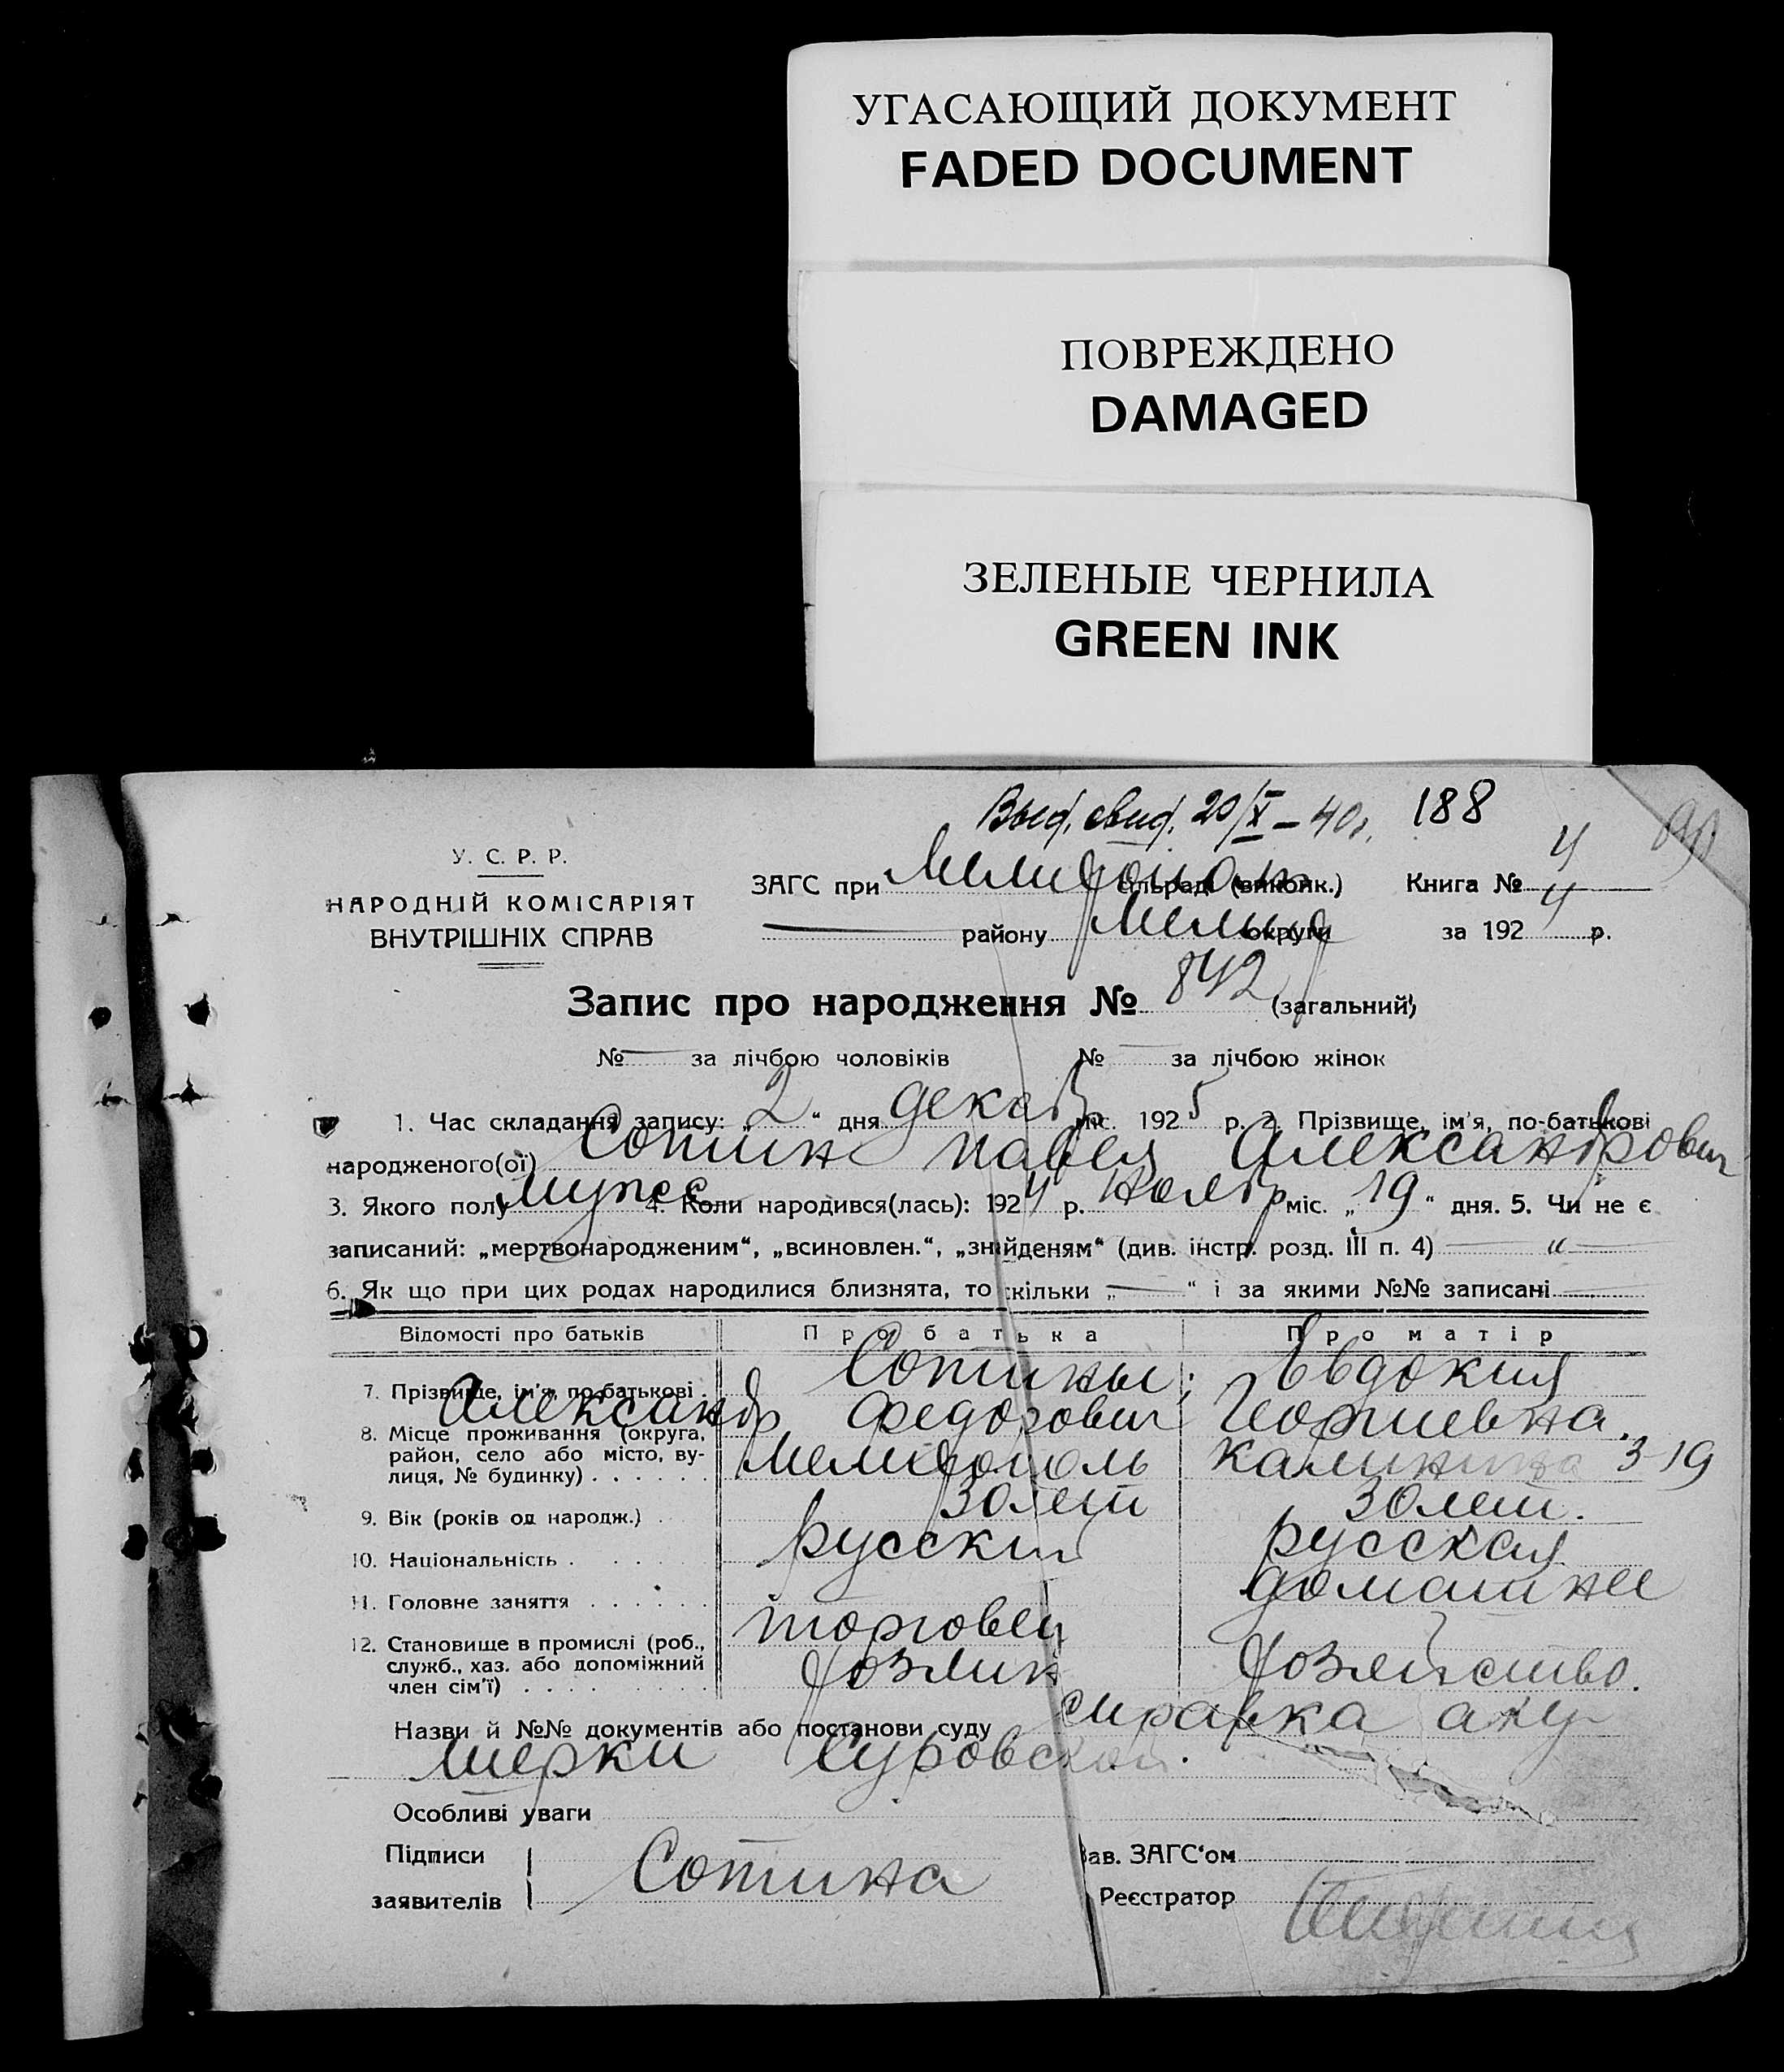 УГАСАЮЩИЙ ДОКУМЕНТ
FADED DOCUMENT
ПОВРЕЖДЕНО
DAMAGED
ЗЕЛЕНЫЕ ЧЕРНИЛА
GREEN INK
Выд. свид. 20/X - 40г. 188
У. С. Р. Р.
НАРОДНІЙ КОМІСАРІЯТ
ВНУТРІШНІХ СПРАВ
ЗАГС при Мелитопол сільраді (виконк.) Книга № 4
району округи за 192 4 р.
Запис про народження № 842 (загальний)
№ — за лічбою чоловіків № — за лічбою жінок
1. Час складання запису: „ 2 “ дня декабр міс. 192 5 р. 2. Прізвище, ім'я, по-батькові
народженого(ої) Сотин Павел Александрович
3. Якого полу Мужс 4. Коли народився(лась): 192 4 р. Ноябр міс. „ 19 “ дня. 5. Чи не є
записаний: „мертвонародженим“, „всиновлен.“, „знайденям“ (див. інстр. розд. III п. 4) — „ —
6. Як що при цих родах народилися близнята, то скільки „ — “ і за якими №№ записані —
Відомості про батьків Про батька Про матір
7. Прізвище, ім'я, по-батькові . Сотины; Евдокия
Александр Федорович Георгиевна.
8. Місце проживання (округа,
район, село або місто, ву-
лиця, № будинку) . . . . . . Мелитополь Калинина 3-19
9. Вік (років од народж.) . 30 лет 30 лет.
10. Національність . . . . русский русская
11. Головне заняття . . . . . . торговец домашнее
12. Становище в промислі (роб.,
служб., хаз. або допоміжний
член сім'ї) . . . . . . . . хозяин хозяйство.
Назви й №№ документів або постанови суду справка аку-
шерки Суровской.
Особливі уваги
Підписи
заявителів Сотина
Зав. ЗАГС'ом
Реєстратор